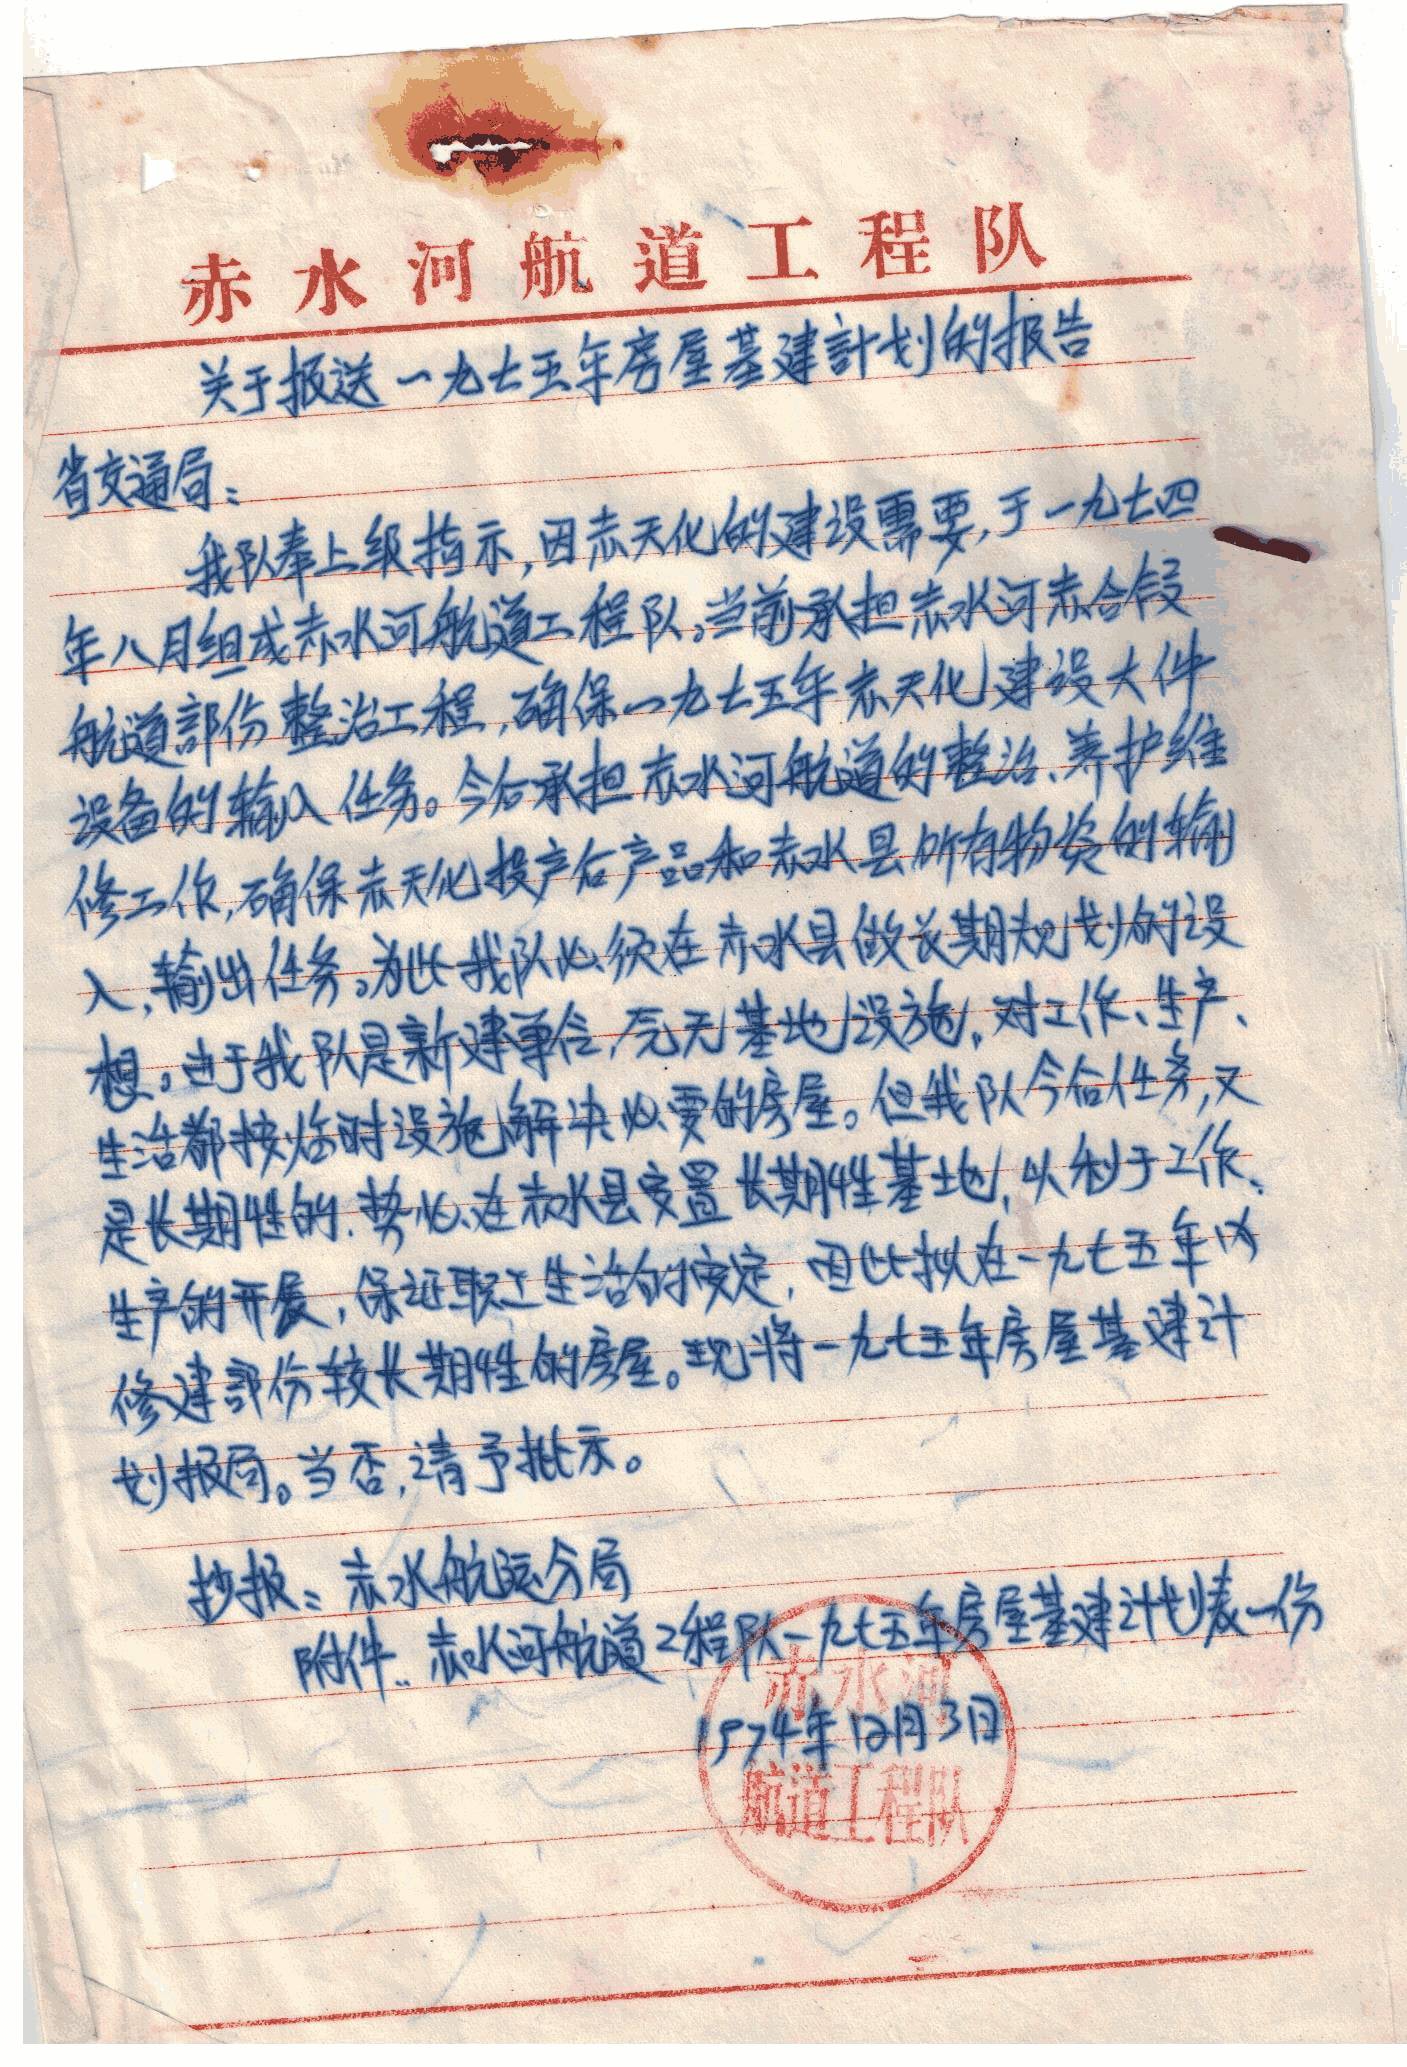 赤水河航道工程队
关于报送一九七五年房屋基建計划的报告
省交通局：
我队奉上级指示，因赤天化的建设需要，于一九七四
年八月组成赤水河航道工程队。当前承担赤水河赤合段
航道部份整治工程，确保一九七五年赤天化建设大件
设备的输入任务。今后承担赤水河航道的整治、养护维
修工作，确保赤天化投产后产品和赤水县所有物资的输
入，输出任务。为此我队必须在赤水县做长期规划的设
想。由于我队是新建单位，毫无基地设施，对工作、生产、
生活都按临时设施解决必要的房屋。但我队今后任务，又
是长期性的，势必在赤水县安置长期性基地，以利于工作、
生产的开展，保证职工生活的安定，因此拟在一九七五年内
修建部份较长期性的房屋。现将一九七五年房屋基建计
划报局。当否，请予批示。
抄报：赤水航运分局
附件：赤水河航道工程队一九七五年房屋基建计划表一份
赤水河
1974年12月3日
航道工程队